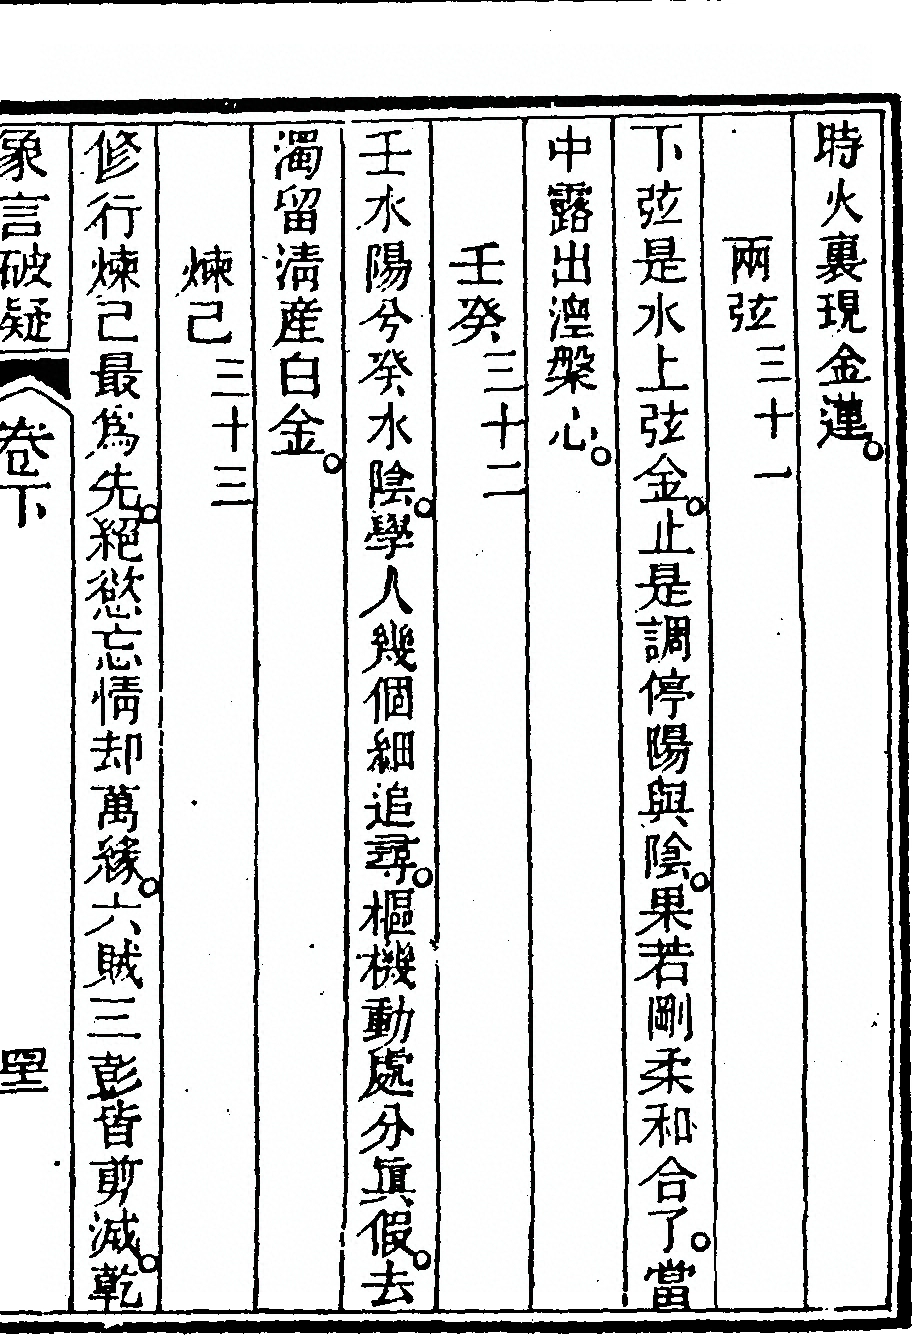 時火裏現金蓮。
兩弦 三十一
下弦是水上弦金。止是調停陽與陰。果若剛柔和合了。當
中露出湼槃心。
壬癸 三十二
壬水陽兮癸水陰。學人幾個細追尋。樞機動處分眞假。去
濁留清産白金。
煉己 三十三
修行煉己最爲先。絕慾忘情却萬緣。六賊三彭皆剪滅。乾
象言破疑 卷下